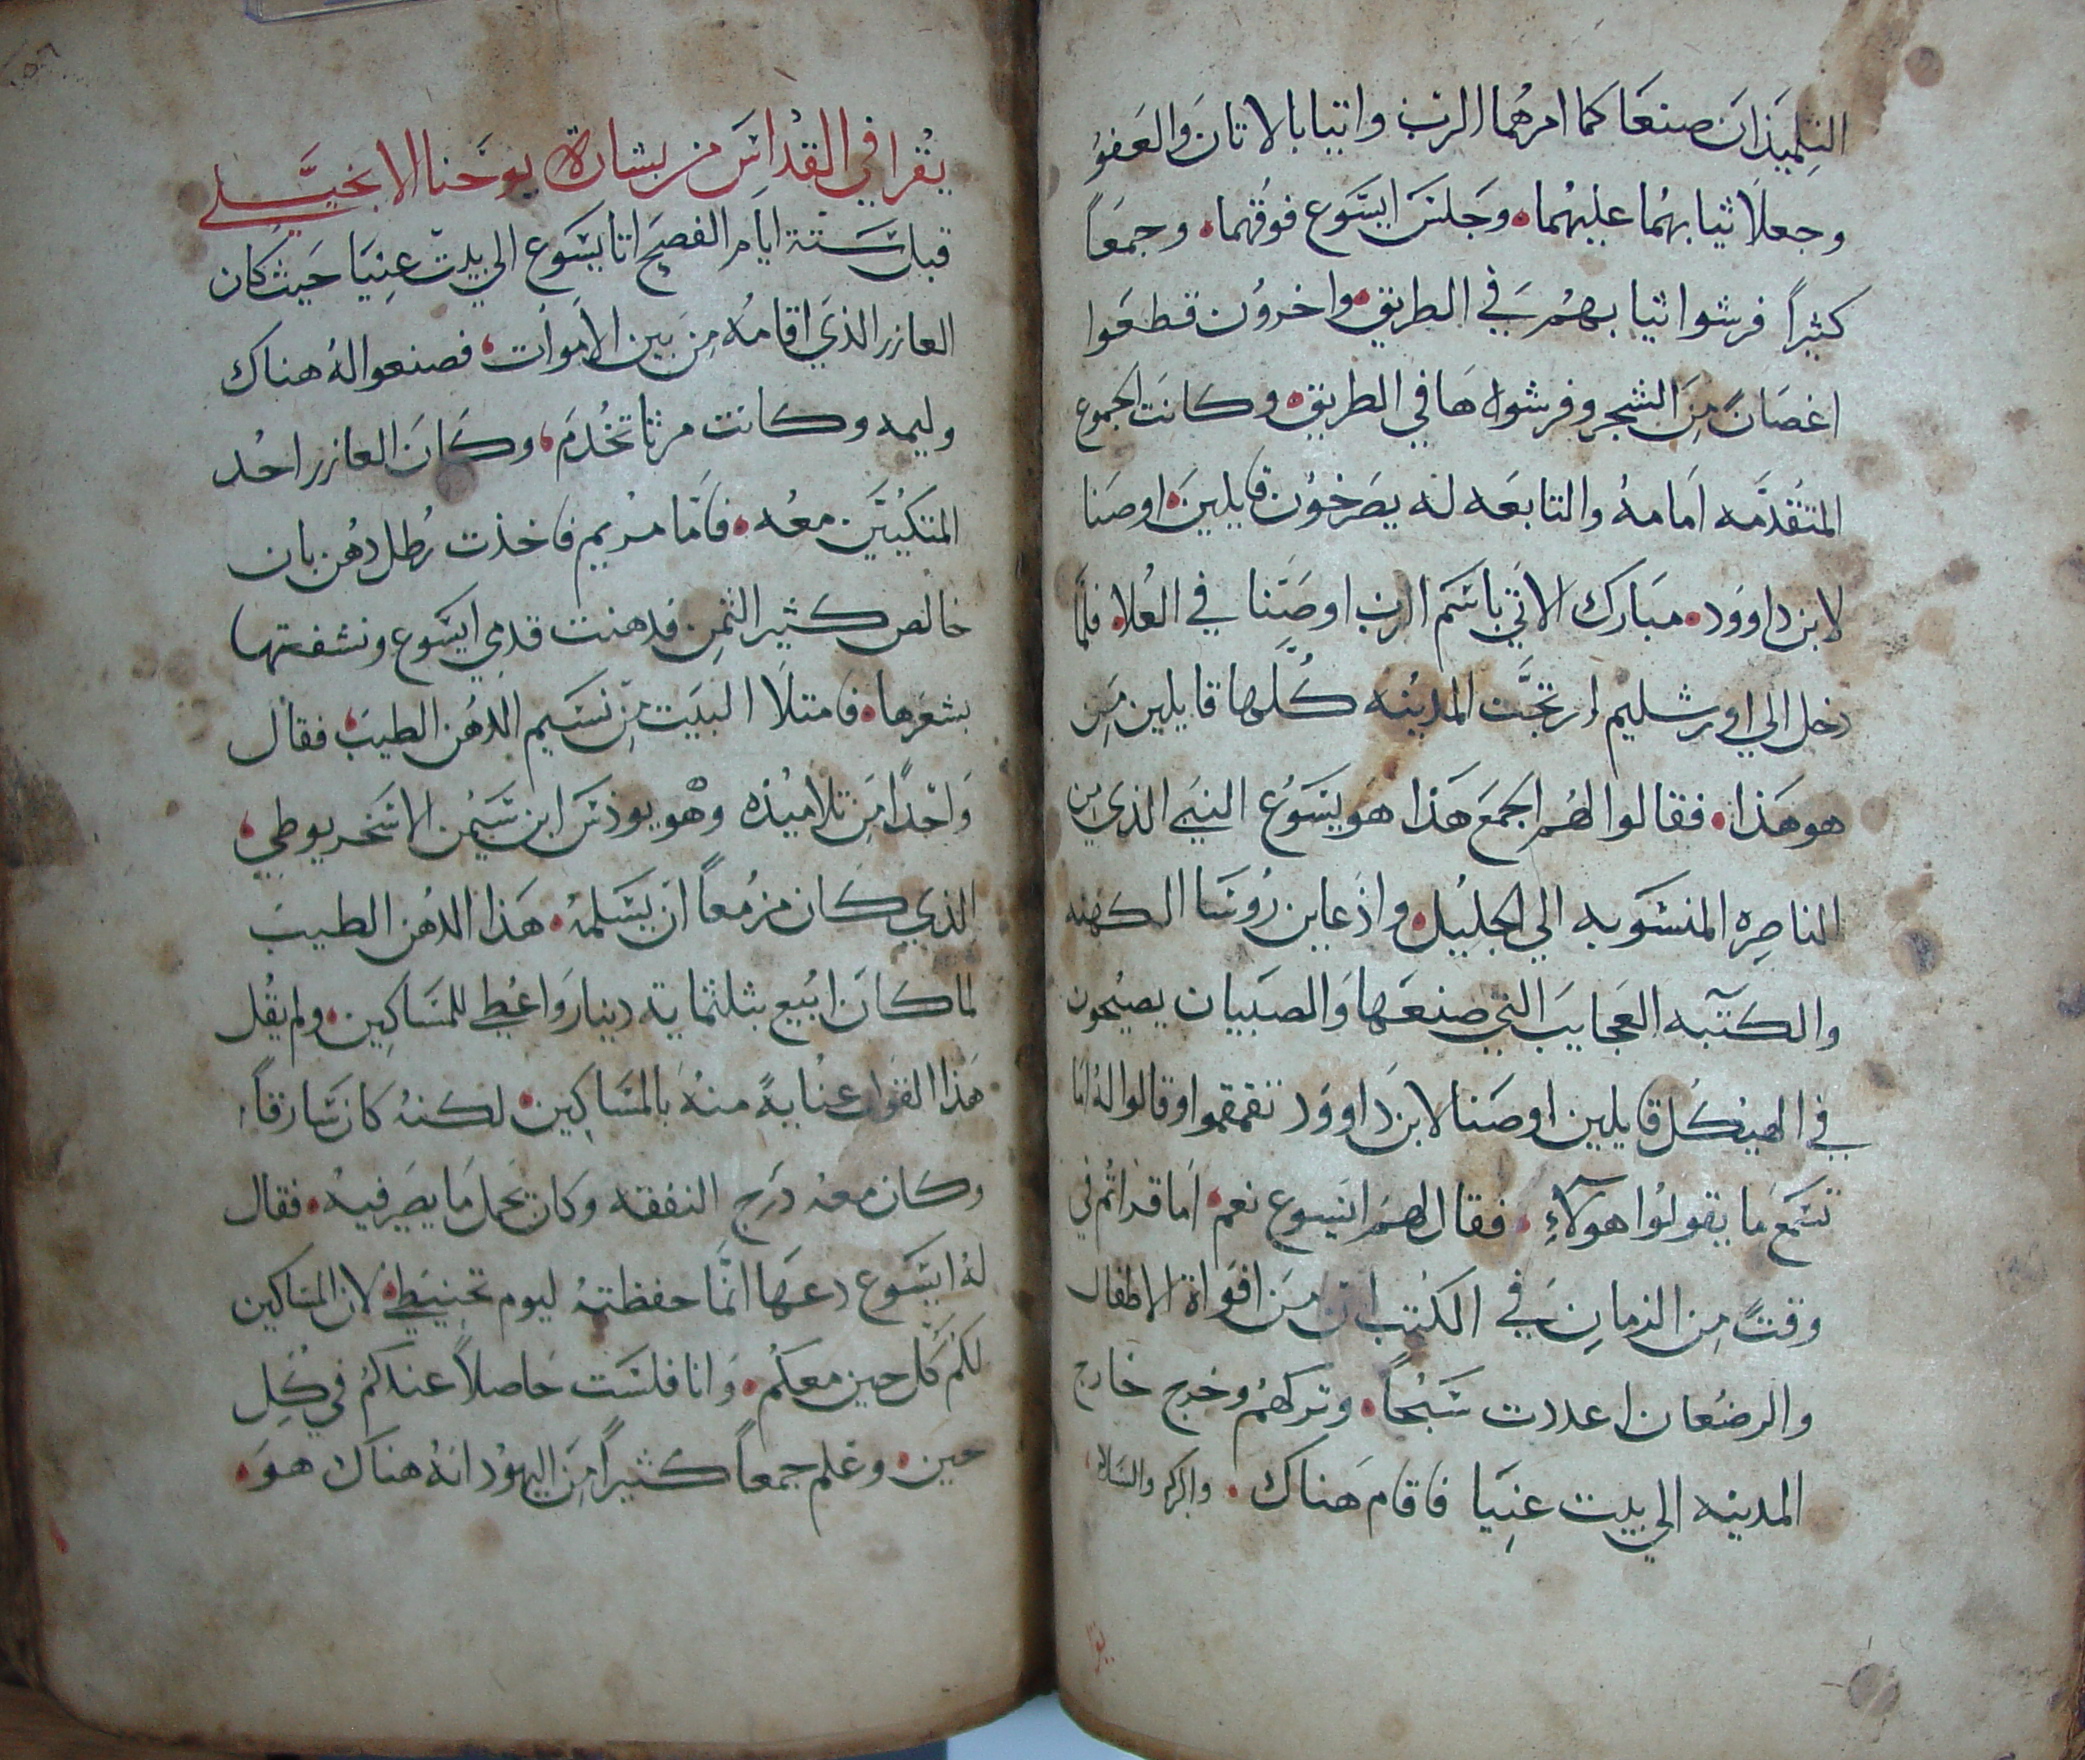 التلميذان صنعا كما امرهما الرب واتيا بالاتان والعفو
وجعلا ثيابهما عليهما. وجلس ايسوع فوقهما. وجمعاً
كثيراً فرشوا ثيابهم في الطريق. واخرون قطعوا
اغصان من الشجر وفرشوها في الطريق. وكانت الجموع
المتقدمه امامه والتابعه له يصرخون قايلين. اوصنا
لابن داوود. مبارك الاتي باسم الرب اوصنا في العلا. فلما
دخل الي اورشليم ارتجت المدينه كلها قايلين من
هو هذا. فقالوا لهم الجمع هذا هو يسوع النبي الذي من
الناصره المنسوبه الي الجليل. واذ عاين روسا الكهنه
والكتبه العجايب التي صنعها والصبيان يصيحون
في الهيكل قايلين اوصنا لابن داوود تقمقموا وقالوا له اما
تسمع ما يقولوا هولاء. فقال لهم ايسوع نعم. اما قراتم في
وقت من الزمان في الكتب ان من افواة الاطفال
والرضعان اعددت سبحاً. وتركهم وخرج خارج
المدينه الي بيت عنيا فاقام هناك.
يقرا في القداس من بشارة يوحنا الانجيلي
قبل ستة ايام الفصح اتا يسوع الي بيت عنيا حيث كان
العازر الذي اقامه من بين الاموات. فصنعوا له هناك
وليمه وكانت مرثا تخدم. وكان العازر احد
المتكيين معه. فاما مريم فاخذت رطل دهن بان
خالص كثير الثمن فدهنت قدمي ايسوع ونشفتها
بشعرها. فامتلا البيت من نسيم الدهن الطيب. فقال
واحداً من تلاميذه وهو يوذس ابن سيمن الاسخريوطي.
الذي كان مزمعاً ان يسلمه. هذا الدهن الطيب
لما كان ابيع بثلثمايه دينار واعطي للمساكين. ولم يقل
هذا القول عنايةً منه بالمساكين. لكنه كان سارقاً.
وكان معه درج النفقه وكان يحمل ما يصير فيه. فقال
له ايسوع دعها انما حفظته ليوم تحنيطي. لان المساكين
لكم كل حين معكم. وانا فلست حاصلاً عندكم في كل
حين. وعلم جمعاً كثيراً من اليهود انه هناك هو.